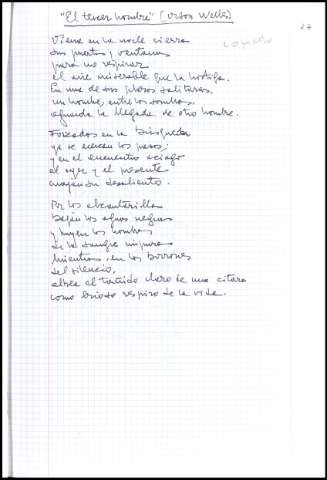 "El tercer hombre" (Orson Welles)
27
Viena en la noche cierra
sus puertas y ventanas
para no respirar
el aire miserable que la hostiga.
En una de sus plazas solitarias,
un hombre, entre las sombras,
aguarda la llegada de otro hombre.
Forzados en la búsqueda
ya se acercan los pasos;
y en el encuentro aciago
el ayer y el presente
su desaliento.
Por las alcantarillas
bajan las aguas negras
y huyen los hombres
de la sangre impura
mientras, en los borrones
del silencio,
el tañido claro de una cítara
como respiro de la vida.